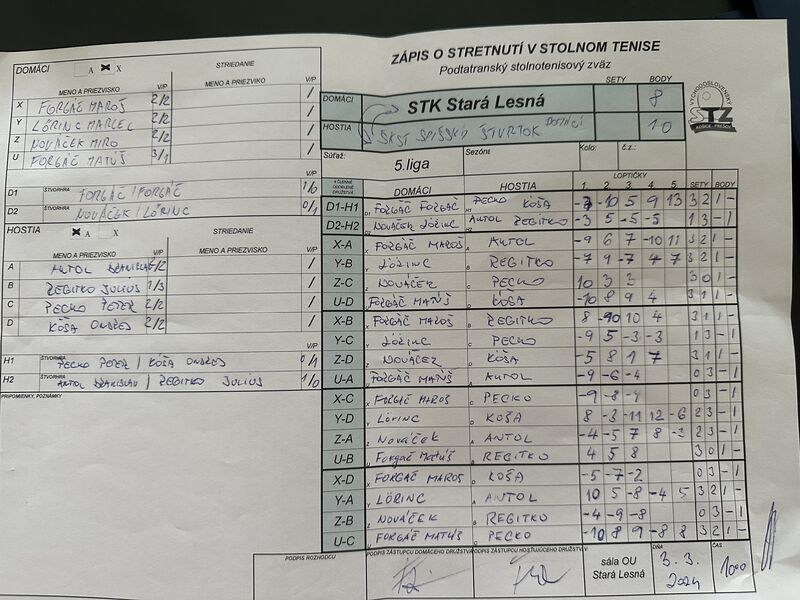 ZÁPIS O STRETNUTÍ V STOLNOM TENISE
Podtatranský stolnotenisový zväz
VÝCHODOSLOVENSKÝ STZ KOŠICE - PREŠOV
SETY BODY
DOMÁCI STK Stará Lesná 8
HOSTIA ŠKST SPIŠSKÝ ŠTVRTOK DOMÁCI 10
Súťaž: 5.liga Sezóna: Kolo: č.z.:
DOMÁCI A X
STRIEDANIE
MENO A PRIEZVISKO V/P MENO A PRIEZVISKO V/P
X FORGÁČ MAROŠ 2/2 /
Y LÖRINC MARCEL 2/2 /
Z NOVÁČEK MIRO 2/2 /
U FORGÁČ MATÚŠ 3/1 /
V/P
D1 ŠTVORHRA FORGÁČ / FORGÁČ 1/0
D2 ŠTVORHRA NOVÁČEK / LÖRINC 0/1
HOSTIA A X
STRIEDANIE
MENO A PRIEZVISKO V/P MENO A PRIEZVISKO V/P
A ANTOL BRANISLAV 2/2 /
B REGITKO JÚLIUS 1/3 /
C PECKO PETER 2/2 /
D KÔŠA ONDREJ 2/2 /
V/P
H1 ŠTVORHRA PECKO PETER / KÔŠA ONDREJ 0/1
H2 ŠTVORHRA ANTOL BRANISLAV / REGITKO JULIUS 1/0
PRIPOMIENKY, POZNÁMKY
4 ČLENNÉ ODDELENÉ DRUŽSTVÁ DOMÁCI HOSTIA LOPTIČKY 1. 2. 3. 4. 5. SETY BODY
D1-H1 D1 FORGÁČ FORGÁČ H1 PECKO KÔŠA -7 -10 5 9 13 3 2 1 -
D2-H2 D2 NOVÁČEK LÖRINC H2 ANTOL REGITKO -3 5 -5 -5 1 3 - 1
X-A X FORGÁČ MAROŠ A ANTOL -9 6 7 -10 11 3 2 1 -
Y-B Y LÖRINC B REGITKO -7 9 -7 4 7 3 2 1 -
Z-C Z NOVÁČEK C PECKO 10 3 3 3 0 1 -
U-D U FORGÁČ MATÚŠ D KÔŠA -10 8 9 4 3 1 1 -
X-B X FORGÁČ MAROŠ B REGITKO 8 -10 10 4 3 1 1 -
Y-C Y LÖRINC C PECKO -9 5 -3 -3 1 3 - 1
Z-D Z NOVÁČEK D KÔŠA -5 8 1 7 3 1 1 -
U-A U FORGÁČ MATÚŠ A ANTOL -9 -6 -4 0 3 - 1
X-C X FORGÁČ MAROŠ C PECKO -9 -8 -4 0 3 - 1
Y-D Y LÖRINC D KOŠA 8 -3 -11 12 -6 2 3 - 1
Z-A Z NOVÁČEK A ANTOL -4 -5 7 8 -3 2 3 - 1
U-B U Forgáč Matúš B REGITKO 4 5 8 3 0 1 -
X-D X FORGÁČ MAROŠ D KOŠA -5 -7 -2 0 3 - 1
Y-A Y LÖRINC A ANTOL 10 5 -8 -4 5 3 2 1 -
Z-B Z NOVÁČEK B REGITKO -4 -9 -8 0 3 - 1
U-C U FORGÁČ MATÚŠ C PECKO -10 8 9 -8 8 3 2 1 -
PODPIS ROZHODCU PODPIS ZÁSTUPCU DOMÁCEHO DRUŽSTVA PODPIS ZÁSTUPCU HOSŤUJÚCEHO DRUŽSTVA sála OU Stará Lesná DŇA 3. 3. 2024 ČAS 1000